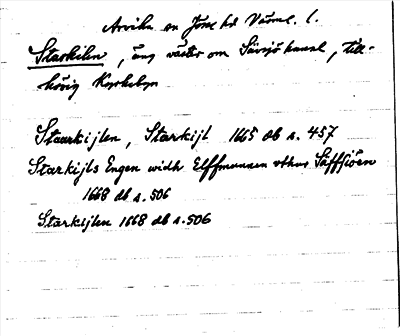 Arvika sn Jösse hd Värml. l.
Starkilen, äng väster om Sävsjö kanal, till-
hörig Kyrkebyn
Staurkijlen, Starkijl 1665 db s. 457
Starkijls Engen widh Elffmunnen vthur Säffsiöen
1668 db s. 506
Starkijlen 1668 db s. 506